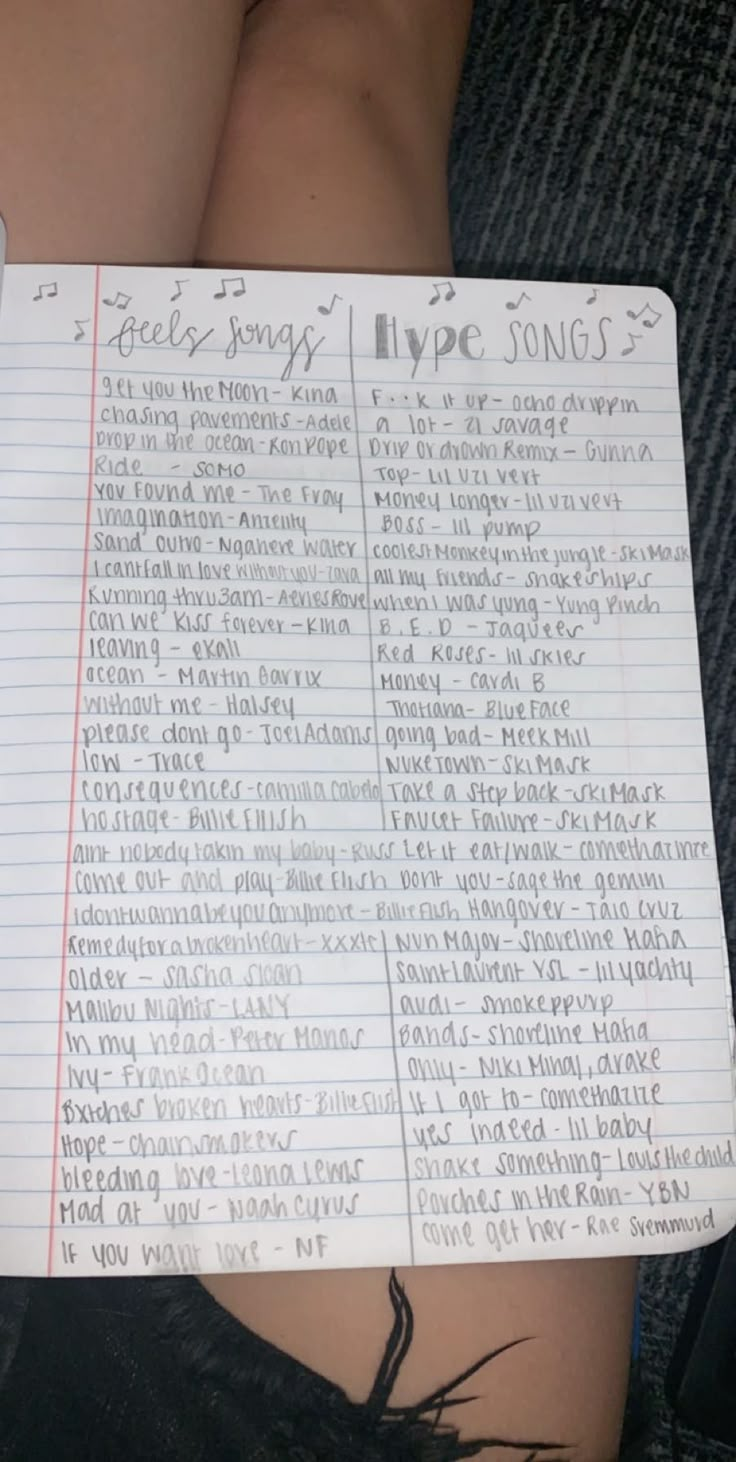 feels songs
Hype SONGS
get you the Moon - Kina
chasing pavements - Adele
Drop in the ocean - Ron Pope
Ride - SOMO
You Found me - The Fray
imagination -
sand outro - Nganere water
I cant fall in love without you - zara
Running thru 3am -
can we kiss forever - Kina
leaving - ekali
ocean - Martin Garrix
without me - Halsey
please dont go - Joel Adams
low - Trace
consequences - camilla cabelo
hostage - Billie Ellish
aint nobody takin my baby - Russ
come out and play - Billie Elish
idontwannabeyouanymore - Billie Elish
Remedy for a broken heart - xxxtc
older - sasha sloan
Malibu Nights - LANY
In my head - Peter Manos
Ivy - Frank Ocean
Bxtches broken hearts - Billie Elish
Hope - chainsmokers
bleeding love - leona lewis
Mad at you - Noah Cyrus
IF you want love - NF
F··k it up - ocho drippin
a lot - 21 savage
Drip or drown Remix - Gunna
TOP - Lil Uzi vert
Money longer - lil uzi vert
BOSS - lil pump
coolest Monkey in the jungle - Ski Mask
all my friends - snakeships
when I was yung - Yung Pinch
B.E.D - Jaquees
Red Roses - lil skies
Money - Cardi B
Thotiana - Blue Face
going bad - Meek Mill
NUKETOWN - SKI MASK
Take a step back - Ski Mask
Faucet Failure - SKI Mask
Let it eat/walk - comethazine
Dont you - sage the gemini
Hangover - Taio Cruz
Nun Major - Shoreline Mafia
Saint Laurent YSL - lil yachty
audi - smokeppurp
Bands - shoreline Mafia
only - Niki Minaj, drake
If I got to - comethazine
yes indeed - lil baby
shake something - Louis the child
Porches in the Rain - YBN
come get her - Rae Sremmurd